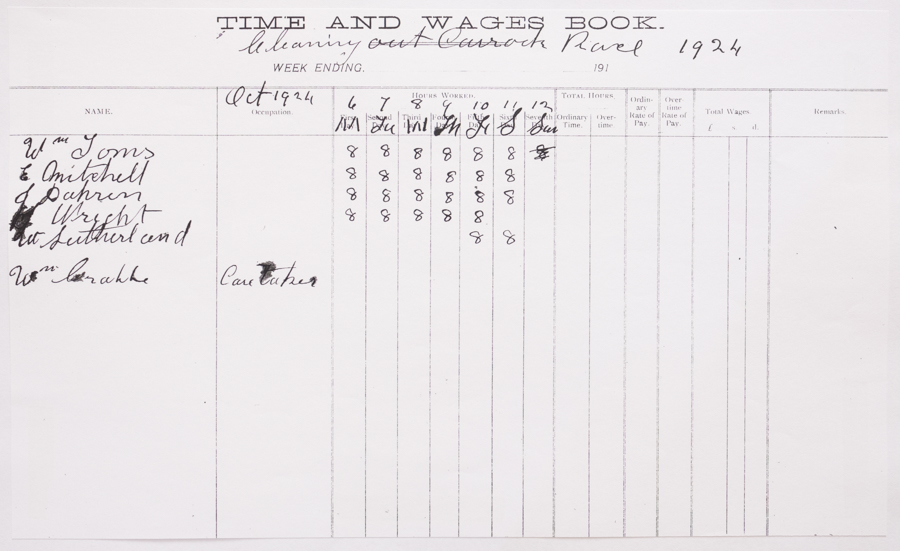 TIME AND WAGES BOOK.
Cleaning out Carrock Race 1924
WEEK ENDING. 191
NAME. Oct 1924 Occupation. HOURS WORKED. TOTAL HOURS. Ordinary Rate of Pay. Over time Rate of Pay. Total Wages. Remarks.
6 7 8 9 10 11 12
M Tu W Th Fr S Sun
First Day Second Day Third Day Fourth Day Fifth Day Sixth Day Seventh Day Ordinary Time. Over-time. £ s. d.
Wm Toms 8 8 8 8 8 8 8
E Mitchell 8 8 8 8 8 8
J 8 8 8 8 8 8
Wright 8 8 8 8 8
W Sutherland 8 8
Wm Caretaker